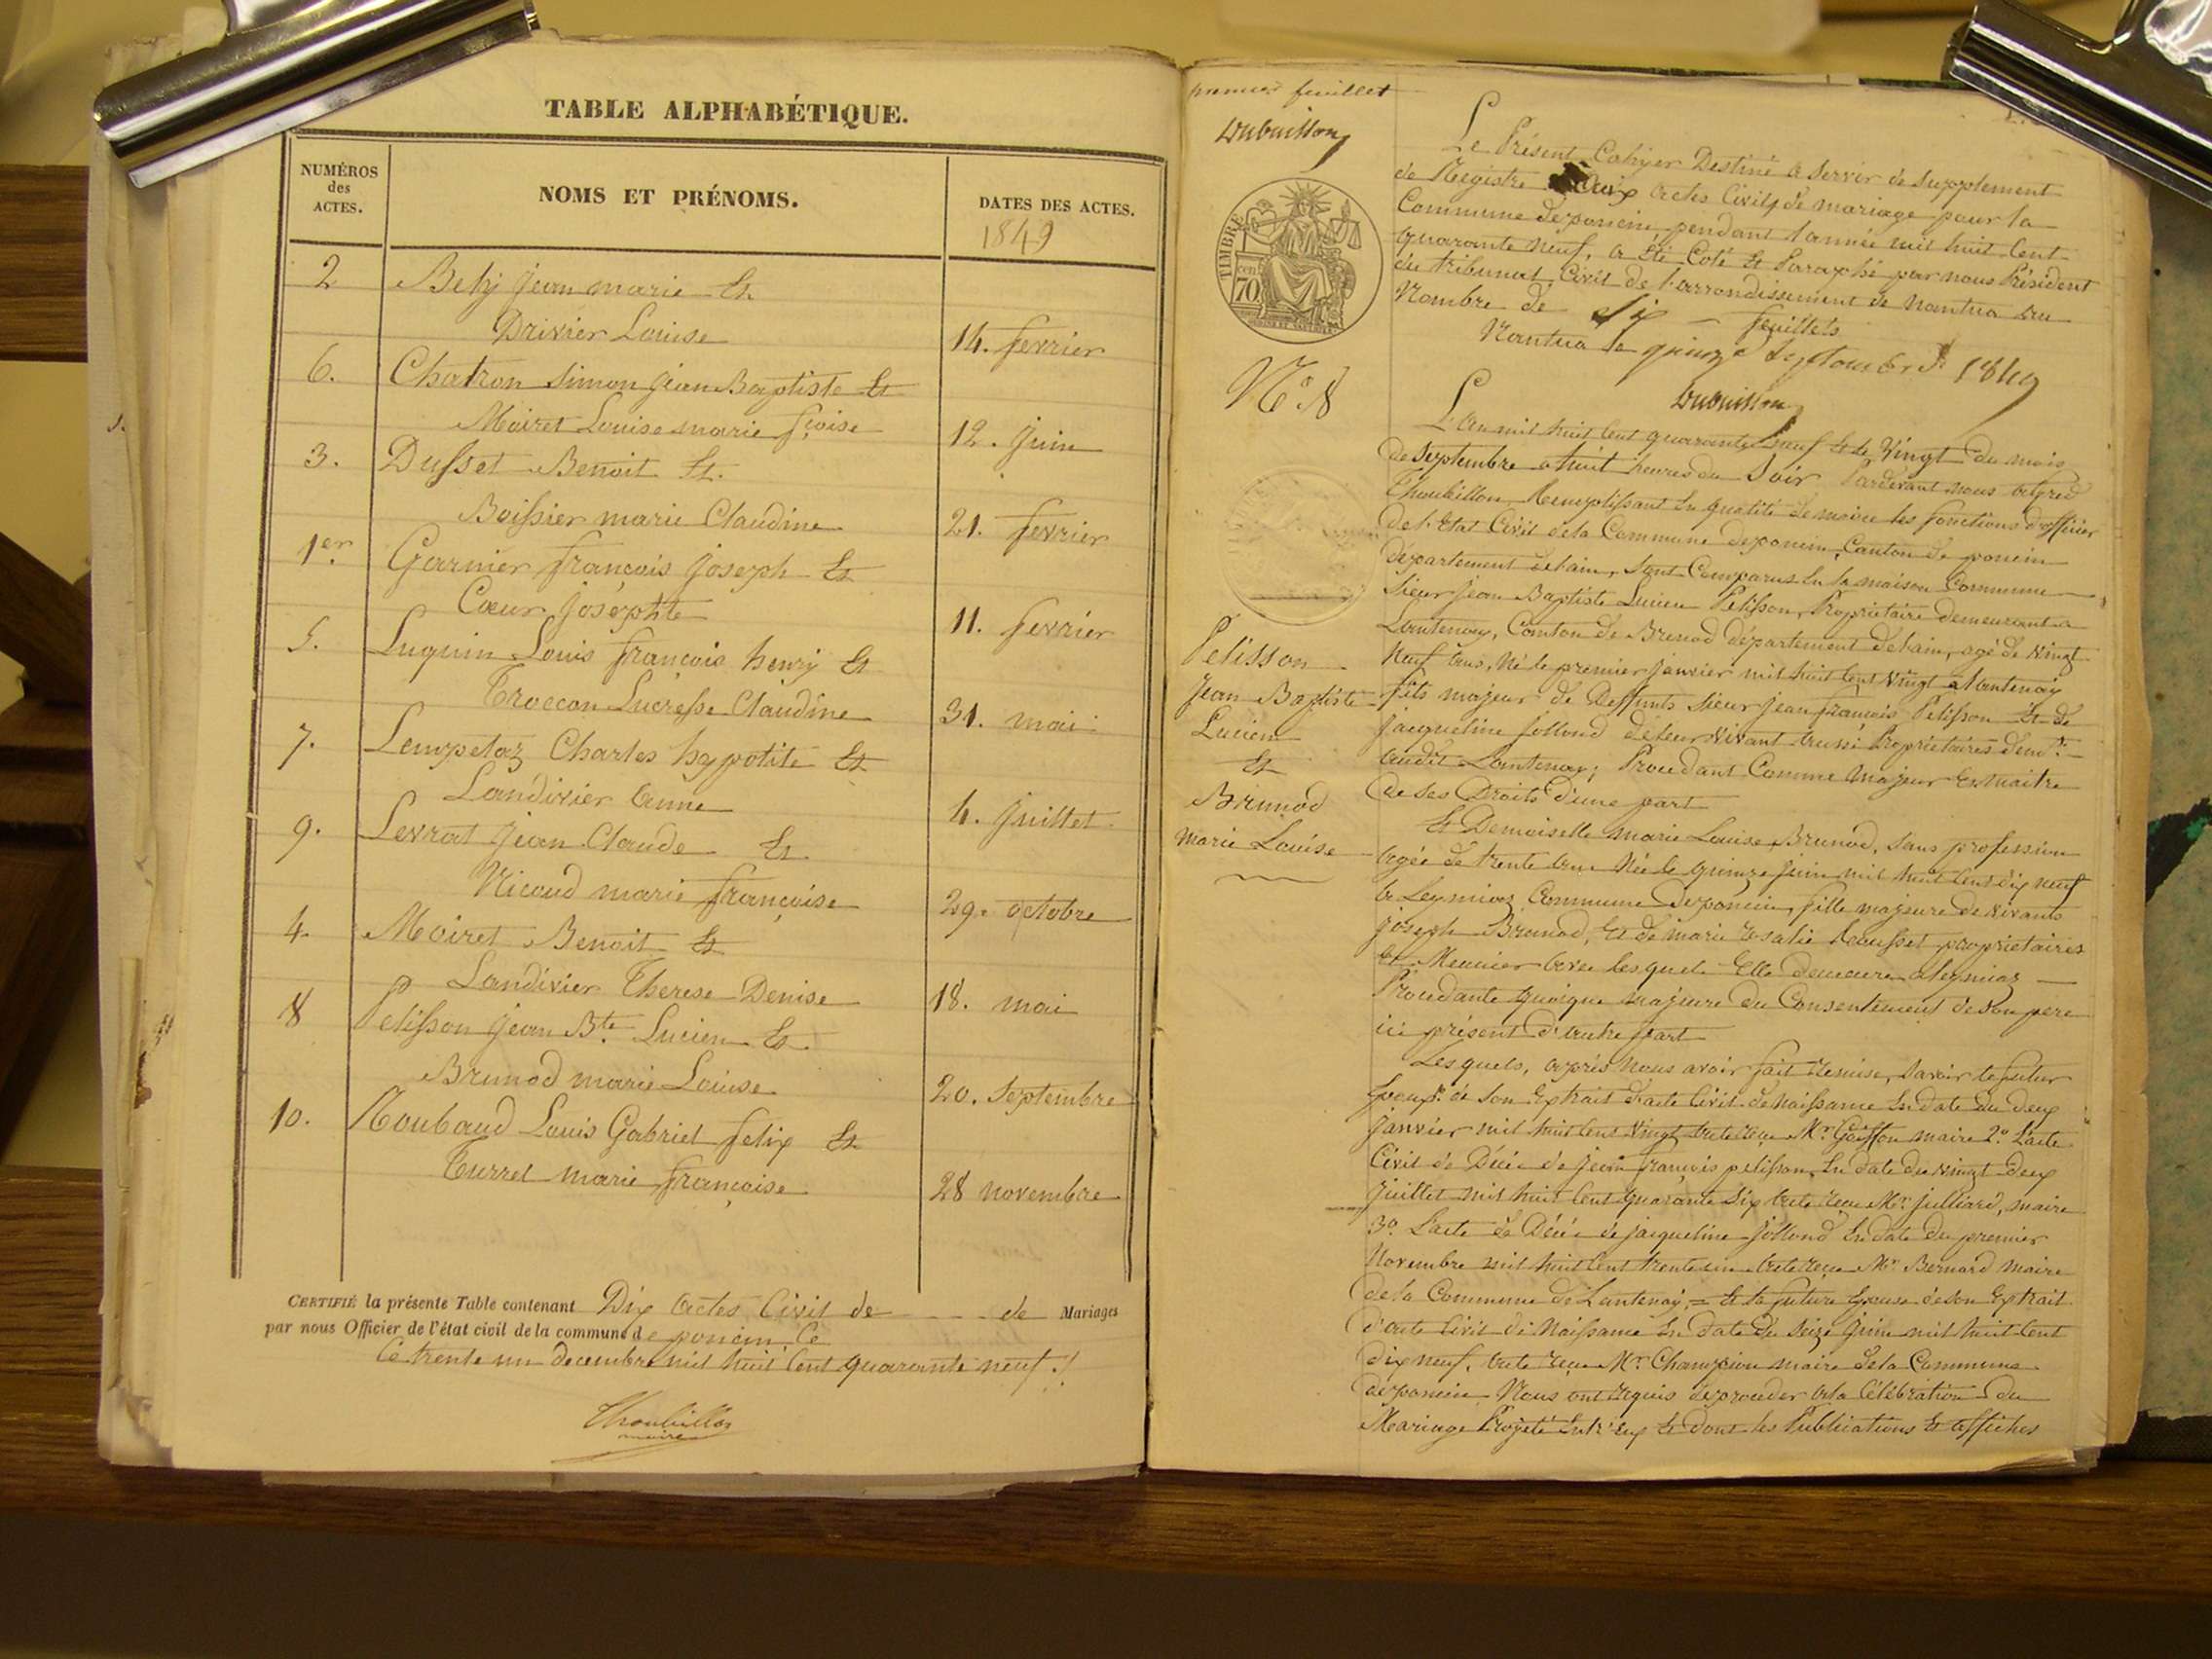 TABLE ALPHABÉTIQUE.
NUMÉROS des ACTES.
NOMS ET PRÉNOMS.
DATES DES ACTES.
1849
2 Bely Jean marie Et
Drivier Louise 14. fevrier
6. Chatron Simon Jean Baptiste Et
Moiret Louise marie fçoise 12. Juin
3. Dusset Benoit Et.
Boissier marie Claudine 21. fevrier
1er. Garnier françois Joseph Et
Cœur Joséphte 11. fevrier
5. Luquin Louis françois henry Et
Troccon Lucresse Claudine 31. mai
7. Lempetaz Charles hypolite Et
Landivier anne 4. Juillet
9. Levrat Jean Claude Et
Nicoud marie françoise 29. octobre
4. Moiret Benoit Et
Landivier Therese Denise 18. mai
8 Pelisson Jean Bte. Lucien Et
Brunod marie Louise 20. Septembre
10. Roubaud Louis Gabriel felix Et
Turrel marie françoise 28 novembre
CERTIFIÉ la présente Table contenant Dix actes Civil de de Mariages
par nous Officier de l'état civil de la commune de poncin, Ce
Ce trente un decembre mil huit Cent quarante neuf ./.
Thoubillon
maire
premier feuillet
Dubuisson
TIMBRE
70
N° 8
Pelisson
Jean Baptiste
Lucien
Et
Brunod
marie Louise
Le Présent Cahyer Destiné a servir de supplement
de Registre Aux actes Civils de mariage pour la
Commune de poncin pendant l'année mil huit Cent
quarante neuf, a été Coté Et Paraphé par nous Président
du tribunal Civil de l'arrondissement de Nantua au
Nombre de Six feuillets
Nantua le quinze Septembre 1849
Dubuisson
L'an mil huit Cent quarante neuf Et le Vingt du mois
de Septembre a huit heures du Soir Pardevant nous
Thoubillon Remplissant En qualité de maire les fonctions d'officier
de l'Etat Civil de la Commune de poncin, Canton de poncin
département de l'ain, Sont Comparus En la maison Commune
Sieur Jean Baptiste Lucien Pelisson, Propriétaire demeurant a
Lantenay, Canton de Brenod département de l'ain, agé de vingt
Neuf ans, Né le premier Janvier mil huit Cent vingt a Lantenay
fils majeur de Deffunts Sieur Jean françois Pelisson Et de
Jacqueline Jolland de leur vivant aussi Propriétaires demt.
audit Lantenay; Procédant Comme Majeur Et maitre
de ses Droits d'une part
Et Demoiselle marie Louise Brunod, Sans profession
agée de trente ans Née le quinze Juin mil huit Cent dix neuf
a Leymiaz Commune de poncin, fille majeure de vivants
Joseph Brunod, Et de marie propriétaires
Et Meunier avec lesquels Elle demeure a leymiaz
Procedante quoique majeure du Consentement de son pere
ici présent d'autre part
Lesquels, après nous avoir fait remise, Savoir le futur
Epoux 1° de Son Extrait d'acte Civil de naissance En date du deux
Janvier mil huit Cent vingt acte reçu Mr. maire 2° L'acte
Civil de Décès de Jean françois pelisson, En date du vingt deux
Juillet mil huit Cent quarante six acte reçu Mr. Julliard, maire
3° L'acte de Décès de Jacqueline Jolland En date du premier
Novembre mil huit Cent trente un acte reçu Mr. Bernard Maire
de la Commune de Lantenay, = Et la future Epouse de son Extrait
d'acte Civil de Naissance En date du Seize Juin mil huit Cent
dix neuf, acte reçu Mr. Champion maire de la Commune
de poncin Nous ont requis de proceder a la Célébration du
Mariage Projeté Entr'Eux Et dont les Publications Et affiches